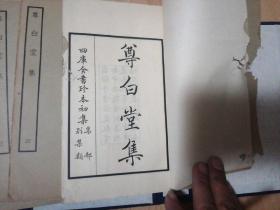 尊白堂集
四庫全書珍本初集
集部
別集類
尊白堂集